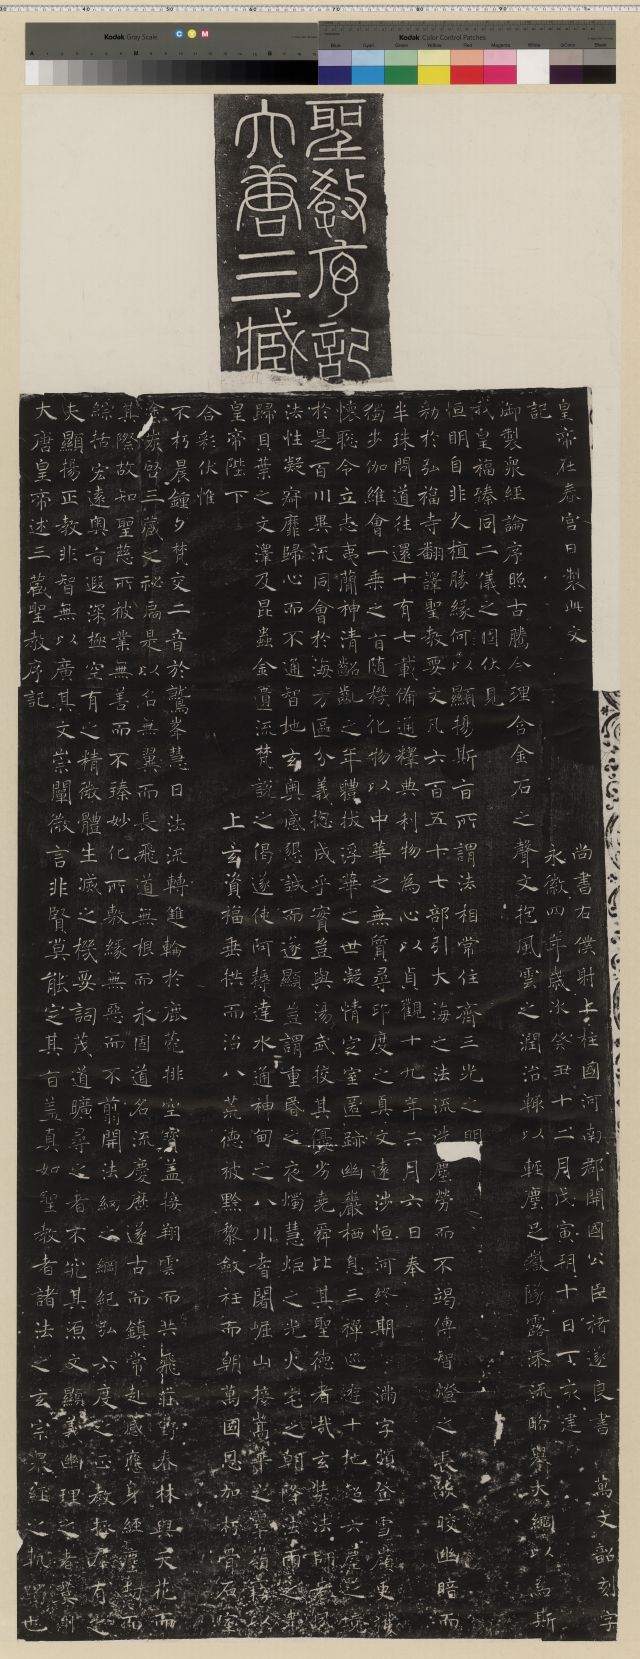 大唐三藏
聖教序記
大唐皇帝述三藏聖教序記
夫顯揚正教非智無以廣其文崇闡微言非賢莫能定其旨蓋真如聖教者諸法之玄宗眾經之軌躅也
綜括宏遠奧旨遐深極空有之精微體生滅之機要詞茂道曠尋之者不究其源文顯義幽理之者莫測
其際故知聖慈所被業無善而不臻妙化所敷緣無惡而不翦開法網之綱紀弘六度之正教拯群有之
塗炭啓三藏之祕扃是以名無翼而長飛道無根而永固道名流慶歷遂古而鎮常赴感應身經塵劫而
不朽晨鍾夕梵交二音於鷲峯慧日法流轉雙輪於鹿菀排空寶蓋接翔雲而共飛莊野春林與天花而
合彩伏惟
皇帝陛下上玄資福垂拱而治八荒德被黔黎斂衽而朝萬國恩加朽骨石室
歸貝葉之文澤及昆蟲金匱流梵說之偈遂使阿耨達水通神甸之八川耆闍崛山接嵩華之翠嶺竊以
法性凝寂靡歸心而不通智地玄奧感懇誠而遂顯豈謂重昏之夜燭慧炬之光火宅之朝降法雨之澤
於是百川異流同會於海万區分義揔成乎實豈與湯武校其優劣堯舜比其聖德者哉玄奘法師者夙
懷聡令立志夷簡神清齠齔之年體拔浮華之世凝情定室匿跡幽巖栖息三禪巡遊十地超六塵之境
獨步伽維會一乘之旨隨機化物以中華之無質尋印度之真文遠涉恒河終期滿字頻登雪嶺更獲
半珠問道往還十有七載俻通釋典利物為心以貞觀十九年二月六日奉
勅於弘福寺翻譯聖教要文凡六百五十七部引大海之法流洗塵勞而不竭傳智燈之長焰皎幽暗而
恒明自非久植勝緣何以顯揚斯旨所謂法相常住齊三光之明
我皇福臻同二儀之固伏見
御製眾經論序照古騰今理含金石之聲文抱風雲之潤治輒以輕塵足嶽墜露添流略舉大綱以為斯
記
皇帝在春宮日製此文
永徽四年歲次癸丑十二月戊寅朔十日丁亥建
尚書右僕射上柱國河南郡開國公臣褚遂良書 萬文韶刻字
Kodak Gray Scale
C Y M
Kodak Color Control Patches
Blue Cyan Green Yellow Red Magenta White 3/Color Black